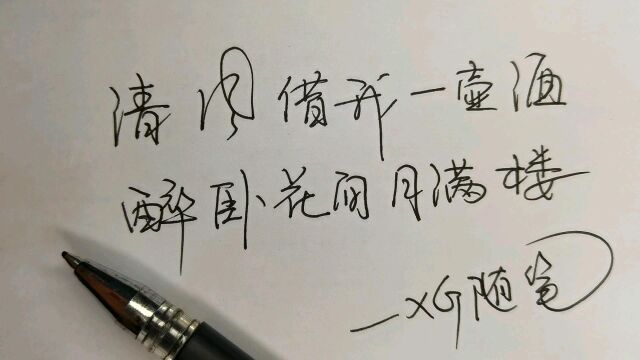 清风借我一壶酒
醉卧花间月满楼
—XG随笔